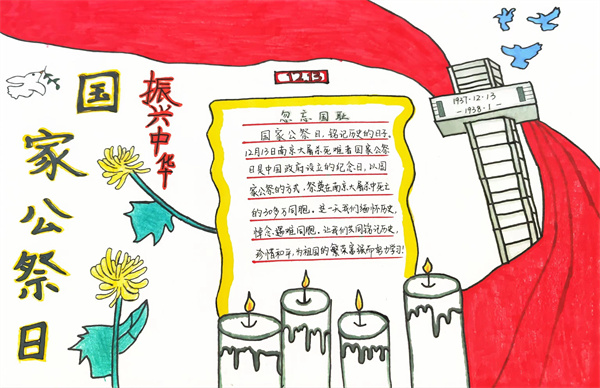 国家公祭日
振兴中华
12.13
1937.12.13
-1938.1-
忽忘国耻
国家公祭日,铭记历史的日子。
12月13日南京大屠杀死难者国家公祭
日是中国政府设立的纪念日,以国
家公祭的方式,祭奠在南京大屠杀中死亡
的30多万同胞,这一天我们缅怀历史,
悼念遇难同胞,让我们共同铭记历史,
珍惜和平,为祖国的繁荣富强而努力学习!